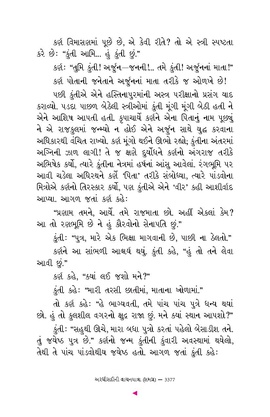 કર્ણ વિમાસણમાં પૂછે છે, એ કેવી રીતે? તો એ સ્ત્રી સ્પષ્ટતા
કરે છે: “કુંતી આમિ... હું કુંતી છું.”
કર્ણ: “તુમિ કુંતી! અર્જુન–જનની!.. તમે કુંતી! અર્જુનનાં માતા!”
કર્ણ પોતાની જનેતાને અર્જુનનાં માતા તરીકે જ ઓળખે છે!
પછી કુંતીએ એને હસ્તિનાપુરમાંની અસ્ત્ર પરીક્ષાનો પ્રસંગ યાદ
કરાવ્યો. પડદા પાછળ બેઠેલી સ્ત્રીઓમાં કુંતી મૂંગી મૂંગી બેઠી હતી ને
એને આશિષ આપતી હતી. કૃપાચાર્યે કર્ણને એના પિતાનું નામ પૂછ્યું
ને એ રાજકુલમાં જન્મ્યો ન હોઈ એને અર્જુન સાથે યુદ્ધ કરવાના
અધિકારથી વંચિત રાખ્યો. કર્ણ મૂંગો થઈને ઊભો રહ્યો; કુંતીના અંતરમાં
અગ્નિની ઝાળ લાગી! તે જ ક્ષણે દુર્યોધને કર્ણનો અંગરાજ તરીકે
અભિષેક કર્યો, ત્યારે કુંતીના નેત્રમાં હર્ષનાં આંસુ આવેલાં. રંગભૂમિ પર
આવી ચડેલા અધિરથને કર્ણે ‘પિતા’ તરીકે સંબોધ્યા, ત્યારે પાંડવોના
મિત્રોએ કર્ણનો તિરસ્કાર કર્યો, પણ કુંતીએ એને ‘વીર’ કહી આશીર્વાદ
આપ્યા. આગળ જતાં કર્ણ કહે:
“પ્રણામ તમને, આર્યે. તમે રાજમાતા છો. અહીં એકલાં કેમ?
આ તો રણભૂમિ છે ને હું કૌરવોનો સેનાપતિ છું.”
કુંતી: “પુત્ર, મારે એક ભિક્ષા માગવાની છે, પાછી ના ઠેલતો.”
કર્ણને આ સાંભળી આશ્ચર્ય થયું. કુંતી કહે, “હું તો તને લેવા
આવી છું.”
કર્ણ કહે, “ક્યાં લઈ જશો મને?”
કુંતી કહે: “મારી તરસી છાતીમાં, માતાના ખોળામાં.”
તો કર્ણ કહે: “હે ભાગ્યવતી, તમે પાંચ પાંચ પુત્રે ધન્ય થયાં
છો. હું તો કુલશીલ વગરનો ક્ષુદ્ર રાજા છું. મને ક્યાં સ્થાન આપશો?”
કુંતી: “સહુથી ઊંચે, મારા બધા પુત્રો કરતાં પહેલો બેસાડીશ તને.
તું જયેષ્ઠ પુત્ર છે.” કર્ણનો જન્મ કુંતીની કુંવારી અવસ્થામાં થયેલો,
તેથી તે પાંચ પાંડવોથીય જયેષ્ઠ હતો. આગળ જતાં કુંતી કહે: